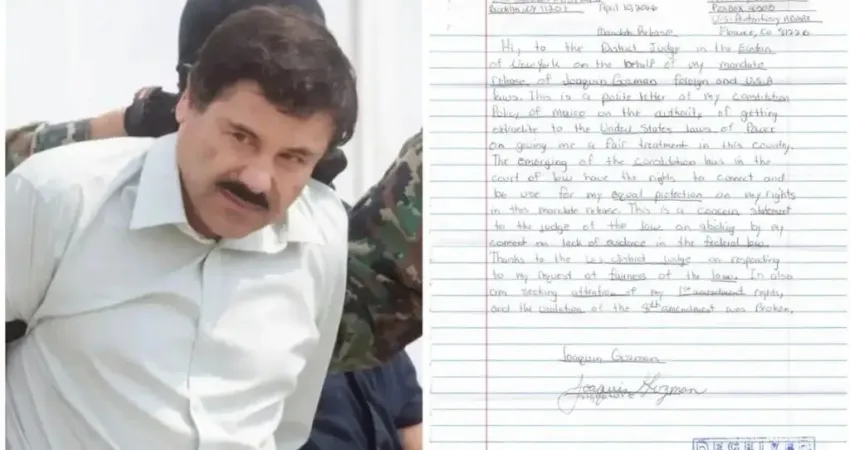 Brooklyn, NY 11201 April 10, 2026 PO Box 8500
U.S. Penitentiary
Mandate Release Florence, Co 81226
Hi, to the District Judge in the
of New York on the behalf of my mandate
release of Joaquin Guzman foreign and U.S.A
laws. This is a polite letter of my constitution
Policy of on the authority of getting
to the United States laws of Power
on giving me a fair treatment in this country.
The emerging of the constitution laws in the
court of law have the rights to correct and
be use for my equal protection on my rights
in this mandate release. This is a concern statement
to the judge of the law on abiding by my
comment on lack of evidence in the federal law.
Thanks to the U.S District Judge on responding
to my request of fairness of the law. In also
am seeking attention of my 1st amendment rights,
and the violation of the 8th amendment was Broken.
Joaquin Guzman
Joaquin Guzman
signature
RECEIVE